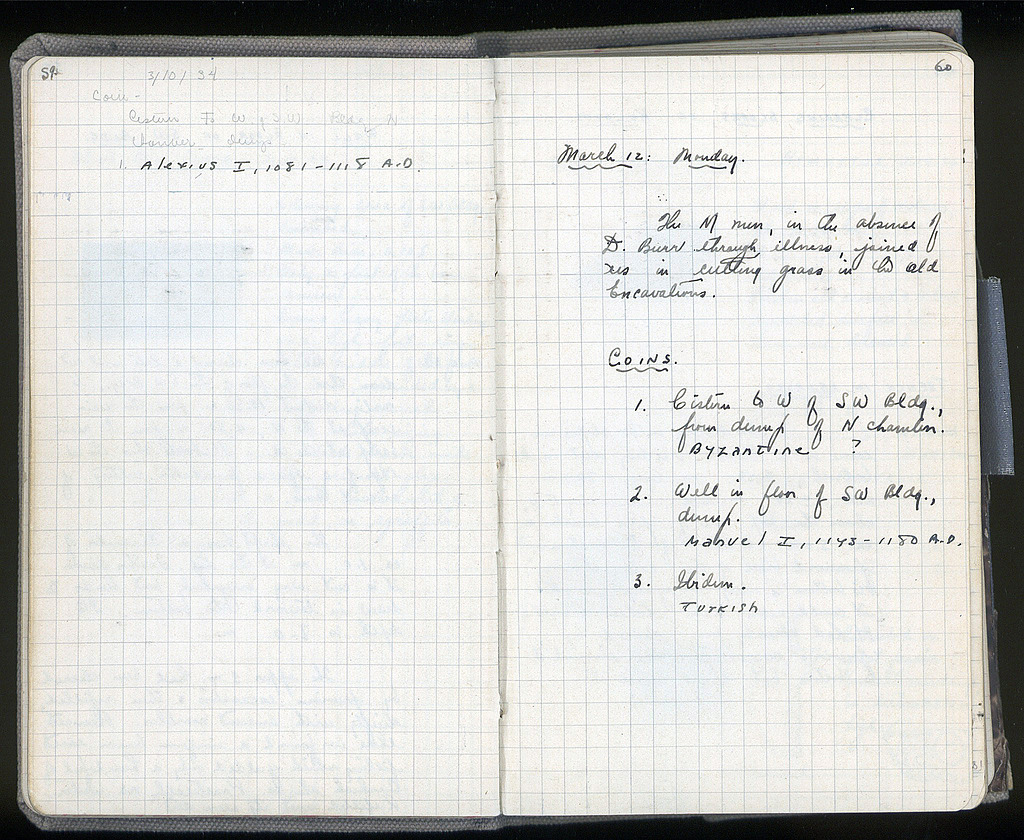 59
3/10/34
Coin -
Cistern to W of SW Bldg N
Chamber dump
1. Alexius I, 1081-1118 A.D.
60
March 12: Monday.
The M men, in the absence of
D. Burr through illness, joined
us in cutting grass in the old
Excavations.
Coins.
1. Cistern to W of SW Bldg.,
from dump of N chamber.
Byzantine ?
2. Well in floor of SW Bldg.,
dump.
Manuel I, 1143-1180 A.D.
3. Ibidem.
Turkish